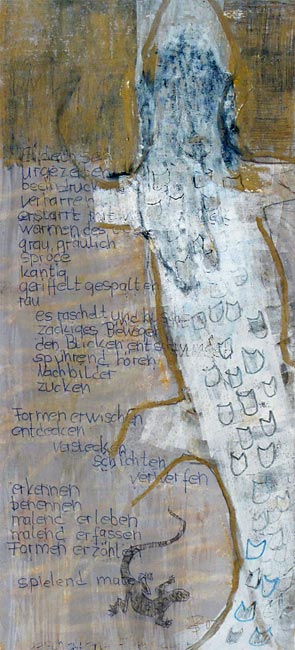 Eidechse
urgezeiten
beeindruckt
verharren
erstarrt
wärmendes
grau, gräulich
spröde
kantig
geriffelt gespalten
rau
es raschelt und
zackiges Bewegen
den Blicken
spührend hören
Nachbilder
zucken
Formen erwischen
entdecken
verstecken
schichten
verwerfen
erkennen
benennen
malend erleben
malend erfassen
Formen erzählen
spielend malen